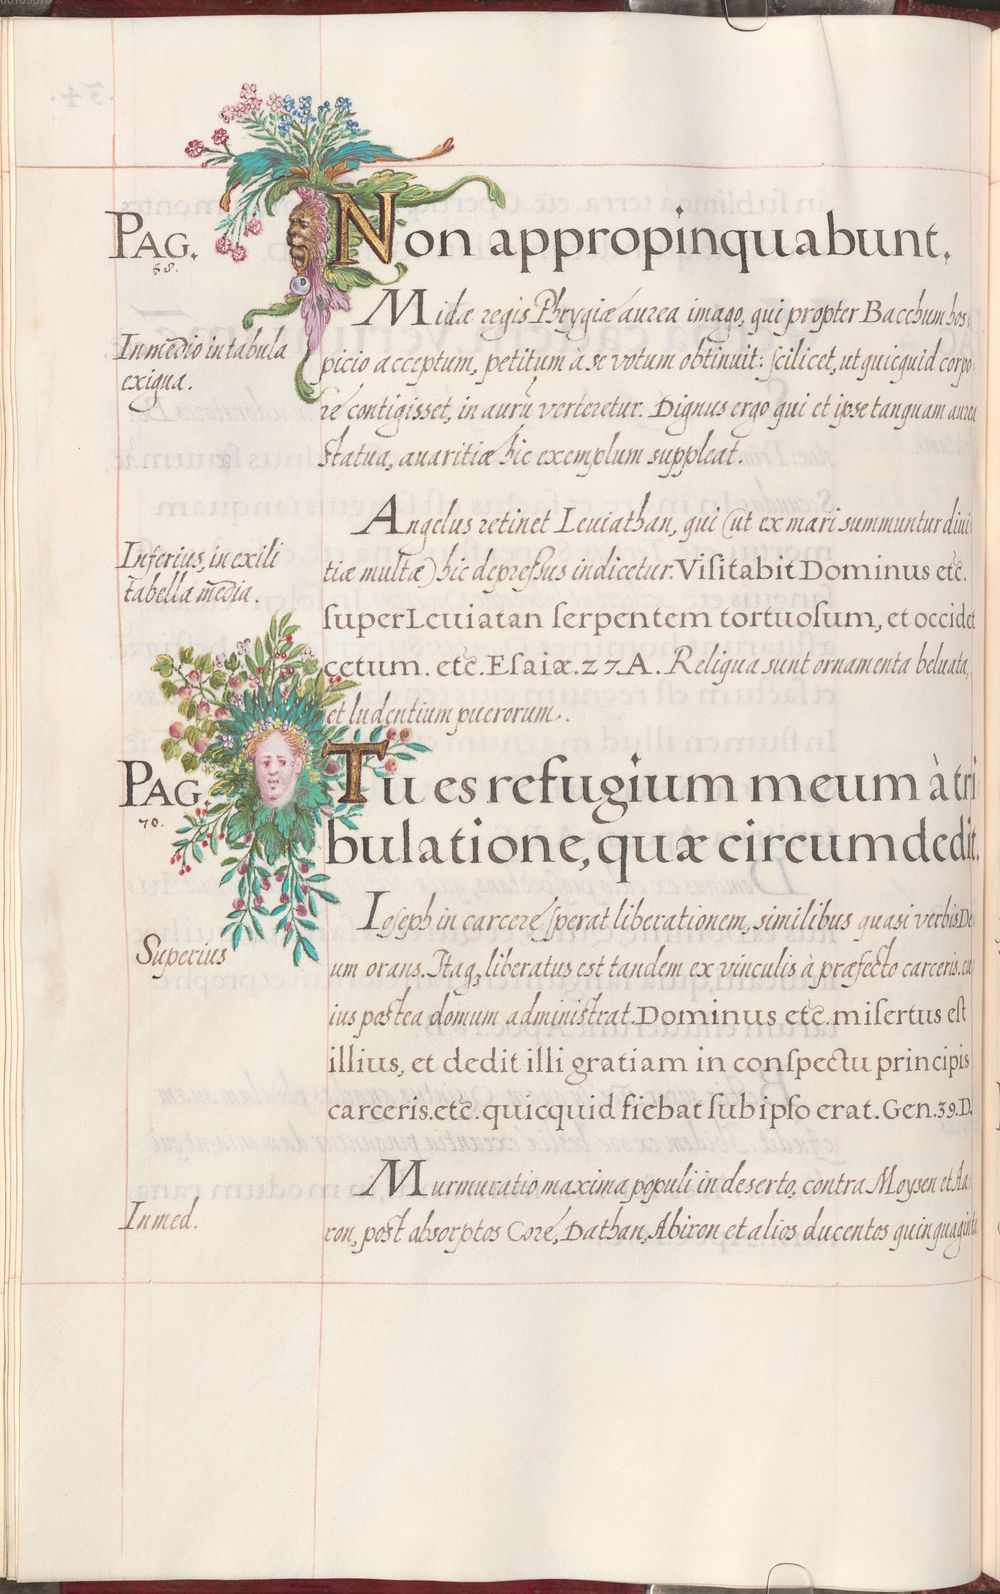 PAG.
68.
Non appropinquabunt.
Midæ regis Phrygiæ aurea imago, qui propter Bacchum hos-
In medio in tabula
exigua.
picio acceptum, petitum a se votum obtinuit: scilicet, ut quicquid corpo-
re contigisset, in aurū verteretur. Dignus ergo qui et ipse tanquam aurea
statua, avaritiæ hic exemplum suppleat.
Angelus retinet Leuiathan, qui (ut ex mari summuntur diui-
Inferius, in exili
tabella media.
tiæ multæ) hic depressus indicetur. Visitabit Dominus etc.
super Leuiatan serpentem tortuosum, et occidet
cetum. etc. Esaiæ. 27. A. Reliqua sunt ornamenta beluata,
et ludentium puerorum.
PAG.
70.
Tu es refugium meum à tri
bulatione, quæ circumdedit.
Superius
Ioseph in carcere sperat liberationem, similibus quasi verbis De-
um orans. Itaq; liberatus est tandem ex vinculis à præfecto carceris. cu-
ius postea domum administrat. Dominus etc. misertus est
illius, et dedit illi gratiam in conspectu principis
carceris. etc. quicquid fiebat sub ipso erat. Gen. 39. D.
In med.
Murmuratio maxima populi in deserto, contra Moysen et Aa-
ron, post absorptos Coré, Dathan, Abiron et alios ducentos quinquaginta